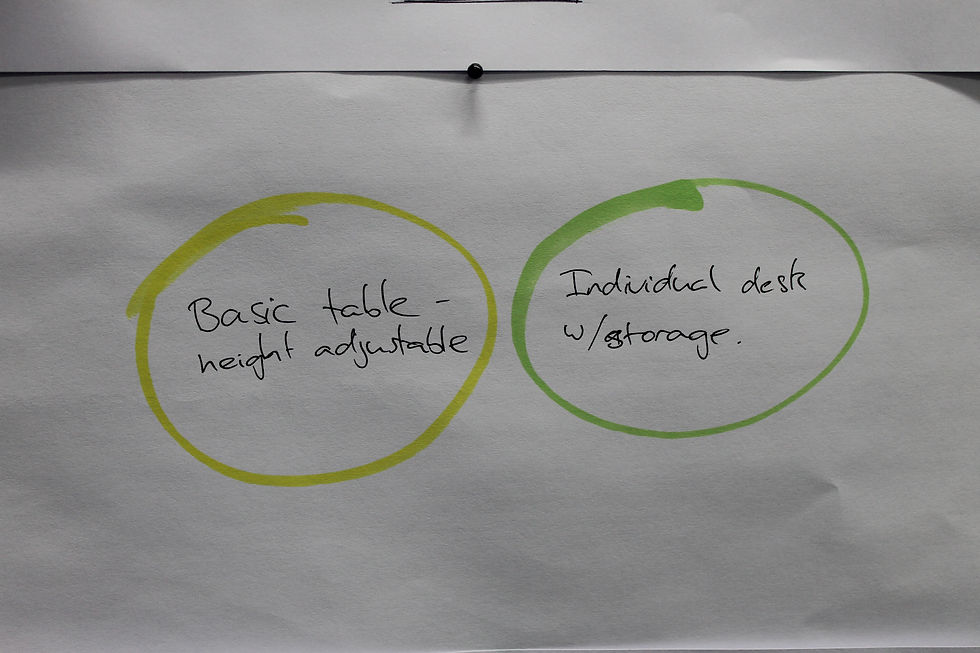 Basic table -
height adjustable
Individual desk
w/storage.